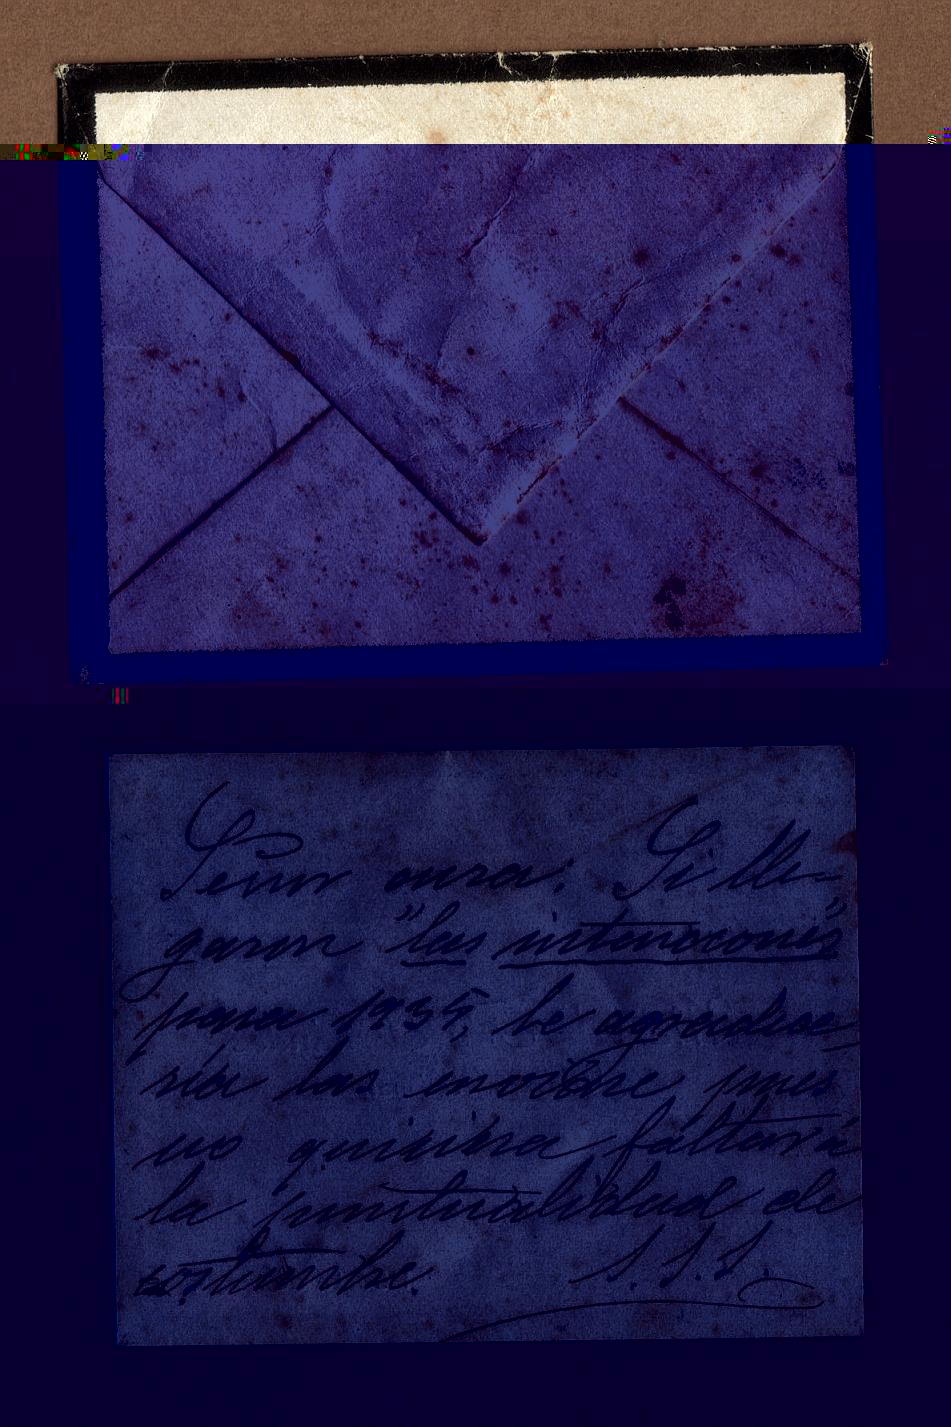 Señor cura: Si lle-
garon "las intenciones"
para 1935, le agradece
ría las enviase pues
no quisiera faltar á
la puntualidad de
costumbre. S. S. S.